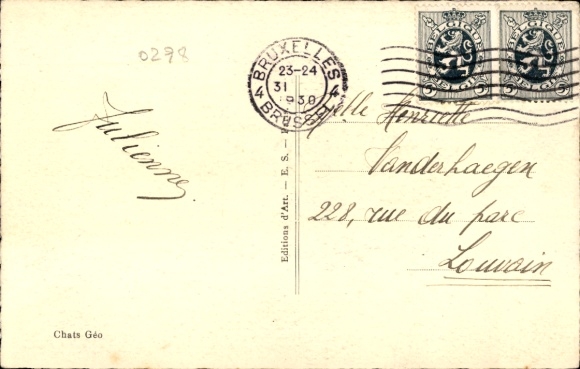 0298
BRUXELLES
23-24
31
1930
4 4
BRUSSEL
BELGIQUE
5 BELGIE 5
BELGIQUE
5 BELGIE 5
Julienne
Melle Henriette
Vanderhaegen
228, rue du parc
Louvain
Editions d'Art. — E. S. —
Chats Géo